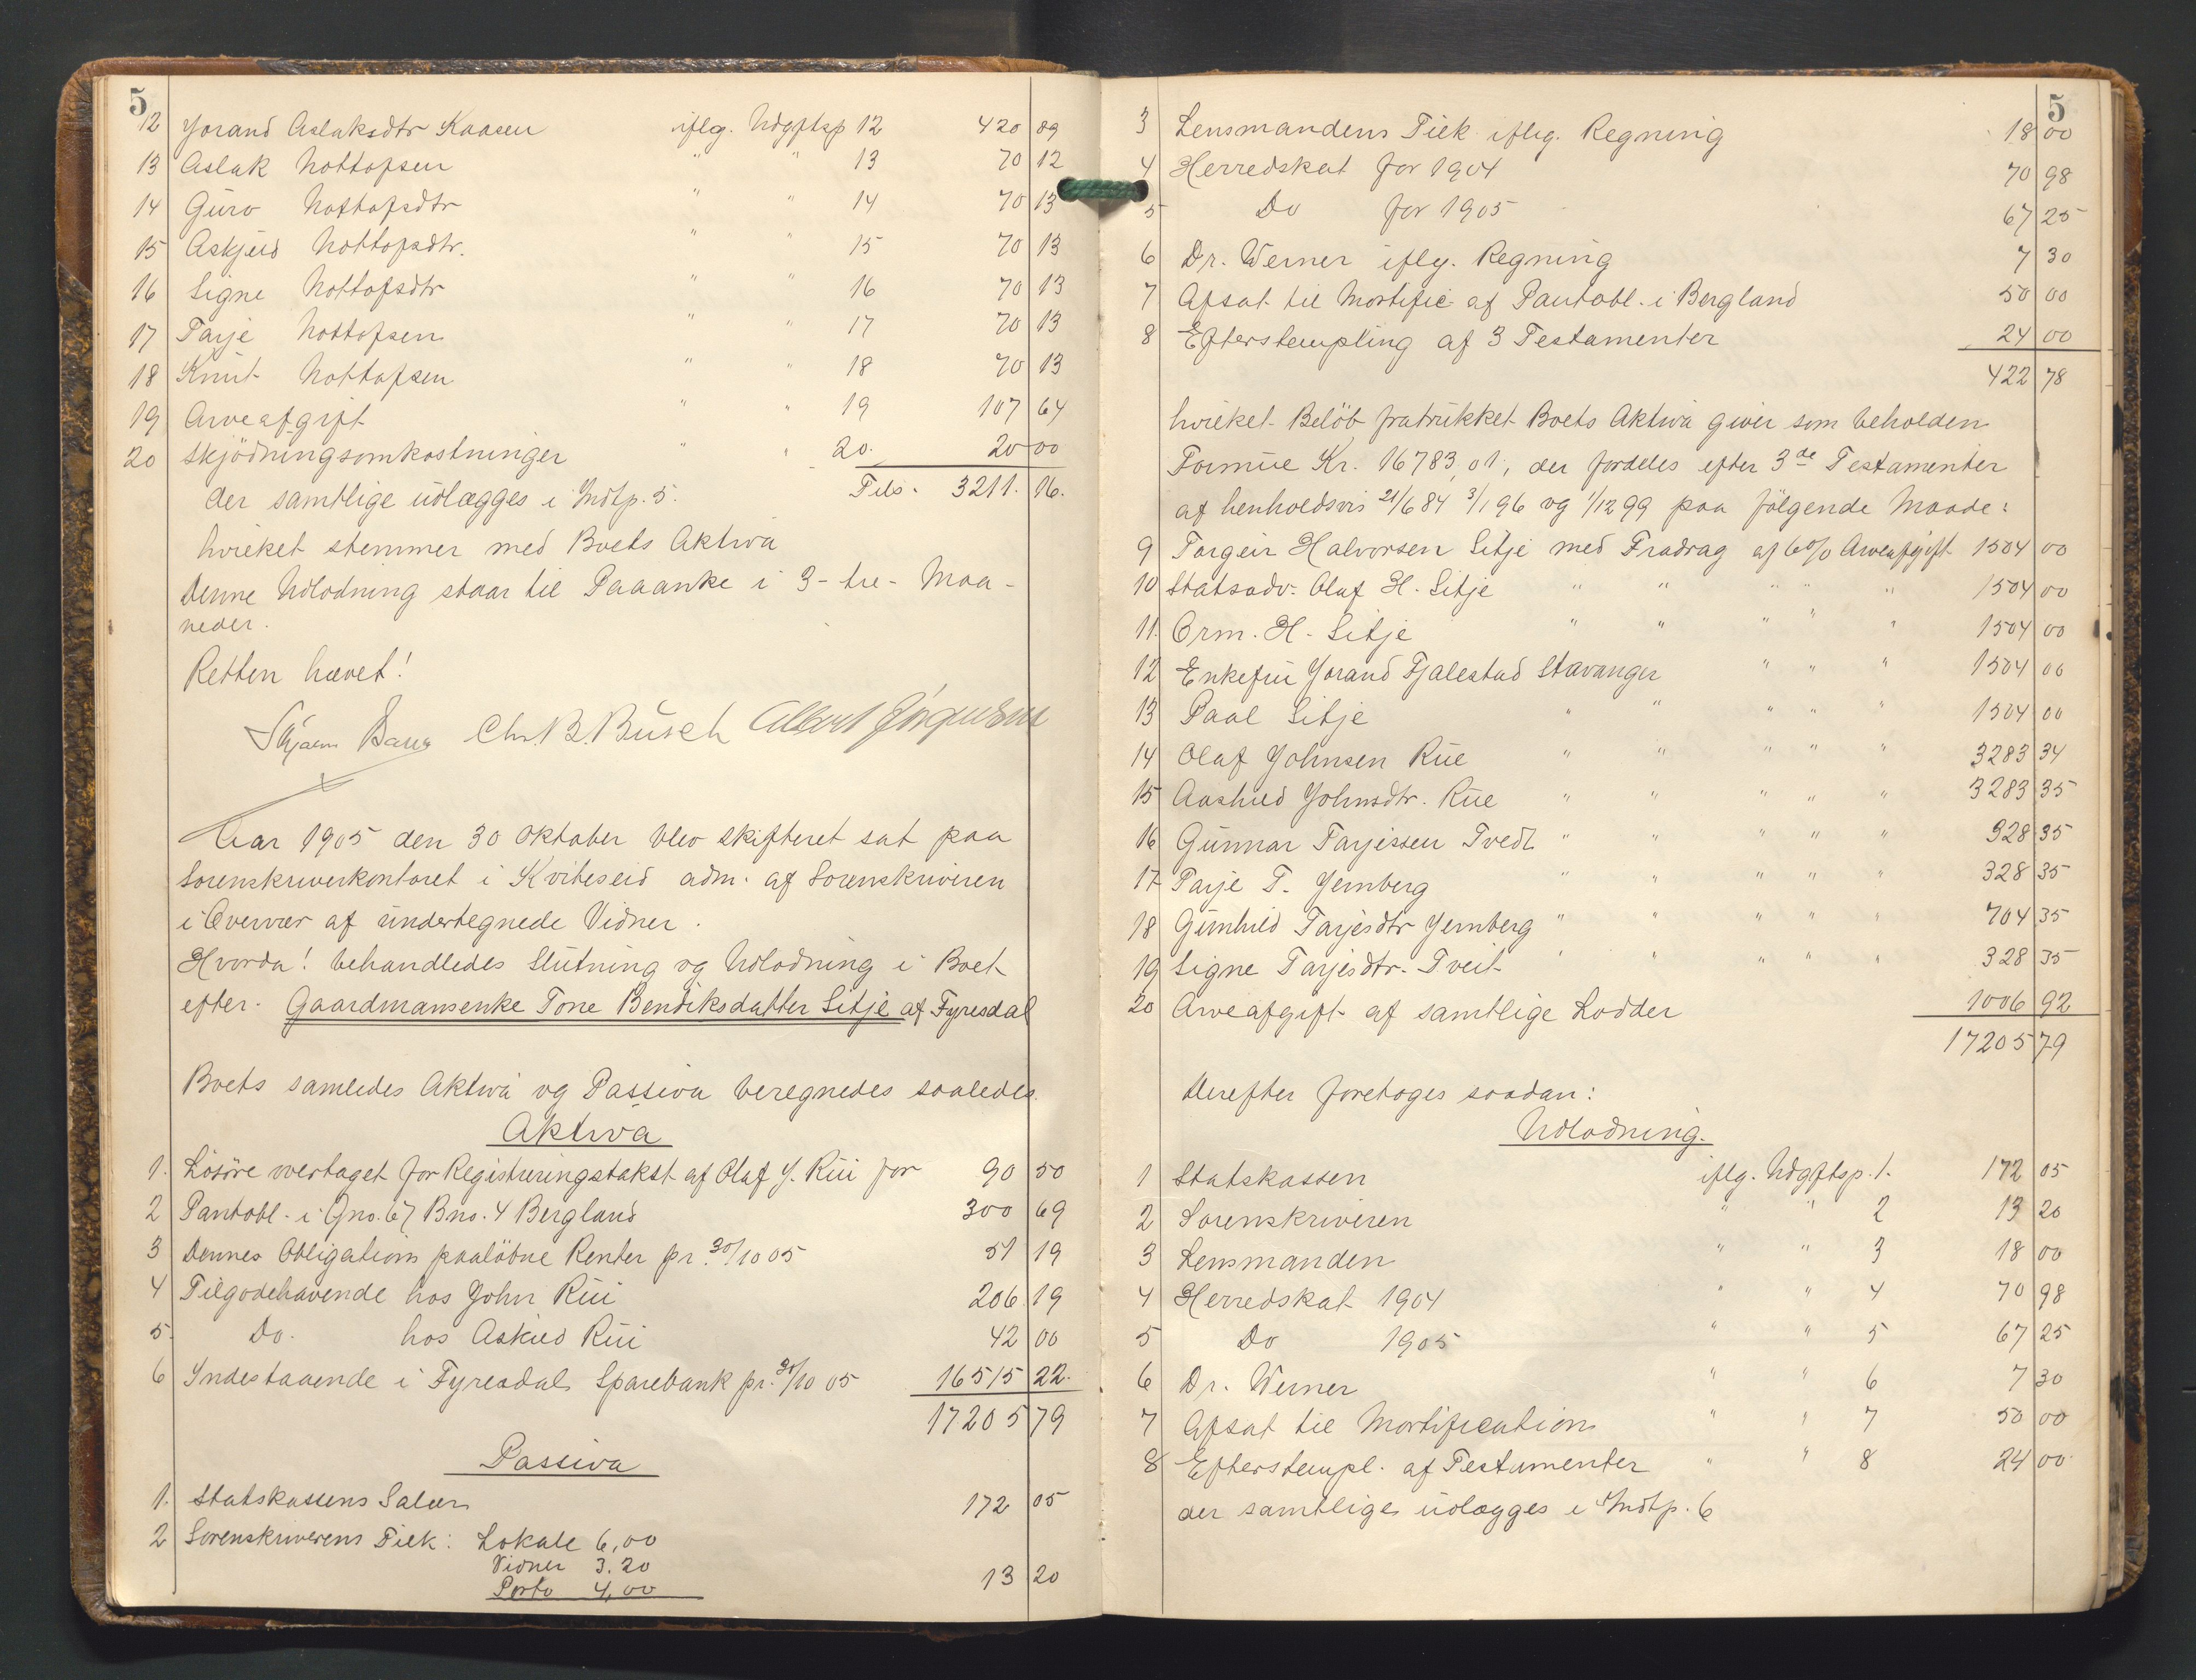 5
12 Jorand Aslaksdtr Kaasen iflg. Udgftsp 12 420 89
13 Aslak Nottofsen " " 13 70 12
14 Guro Nottofsdtr " " 14 70 13
15 Askjerd Nottofsdtr. " " 15 70 13
16 Signe Nottofsdtr " " 16 70 13
17 Tarje Nottofsen " " 17 70 13
18 Knut Nottofsen " " 18 70 13
19 Arveafgift " " 19 107 64
20 Skjødningsomkostninger " " 20. 20 00
der samtlige udlægges i Indtp. 5. Tils. 3211. 16.
hvilket stemmer med Boets Aktiva
Denne Udlodning staar til Paaanke i 3 - tre - Maa-
neder.
Retten hævet!
Chr. B. Busch Albert Jørgensen
Aar 1905 den 30 Oktober blev Skifteret sat paa
Sorenskriverkontoret i Kviteseid adm. af Sorenskriveren
i Overvær af undertegnede Vidner.
Hvorda! behandledes Slutning og Udlodning i Boet
efter Gaardmansenke Tone Bendiksdatter Sitje af Fyresdal
Boets samledes Aktiva og Passiva beregnedes saaledes.
Aktiva
1. Løsøre overtaget for Registreringstakst af Olaf J. Rui for 90 50
2 Pantobl. i Gno. 67 Bno. 4 Bergland 300 69
3 Dennes Obligations paaløbne Renter pr. 30/10 05 51 19
4 Tilgodehavende hos John Rui 206 19
5. Do. hos Askied Rui 42 00
6 Indestaaende i Fyresdals Sparebank pr. 30/10 05 16515 22.
17205 79
Passiva
1. Statskassens Salær 172 05
2 Sorenskriverens Tilk: Lokale 6,00
Vidner 3.20
Porto 4,00 13 20
5
3 Lensmandens Tilk iflg. Regning 18 00
4 Herredskat for 1904 70 98
5 Do for 1905 67 25
6 Dr. Werner iflg. Regning 7 30
7 Afsat til Mortific af Pantobl. i Bergland 50 00
8 Efterstempling af 3 Testamenter 24 00
422 78
hvilket Beløb fratrukket Boets Aktiva giver som beholden
Formue Kr. 16783,01, der fordeles efter 3de Testamenter
af henholdsvis 21/6 84 3/1 96 og 1/12 99 paa følgende Maade:
9 Torgeir Halvorsen Sitje med Fradrag af 6% Arveafgift 1504 00
10 Statsadv. Olaf H. Sitje " " " " " 1504 00
11. Orm. H. Sitje " " " " " 1504 00
12 Enkefru Jorand Fjalestad Stavanger " " " 1504 00
13 Paal Sitje " " " " " 1504 00
14 Olaf Johnsen Rue " " " " " 3283 34
15 Aashild Johnsdtr. Rue " " " " " 3283 35
16 Gunnar Tarjessen Tvedt " " " " " 328 35
17 Tarje T. Jernberg " " " " " 328 35
18 Gunhild Tarjesdtr Jernberg " " " " " 704 35
19 Signe Tarjesdtr. Tveit " " " " " 328 35
20 Arveafgift af samtlige Lodder 1006 92
17205 79
Derefter foretoges saadan:
Udlodning.
1 Statskassen iflg. Udgftsp. 1. 172 05
2 Sorenskriveren " " 2 13 20
3 Lensmanden " " 3 18 00
4 Herredskat 1904 " " 4 70 98
5 Do 1905 " " 5 67 25
6 Dr. Werner " " 6 7 30
7 Afsat til Mortification " " 7 50 00
8 Efterstempl. af Testamenter " " 8 24 00
der samtlige udlægges i Indtp. 6